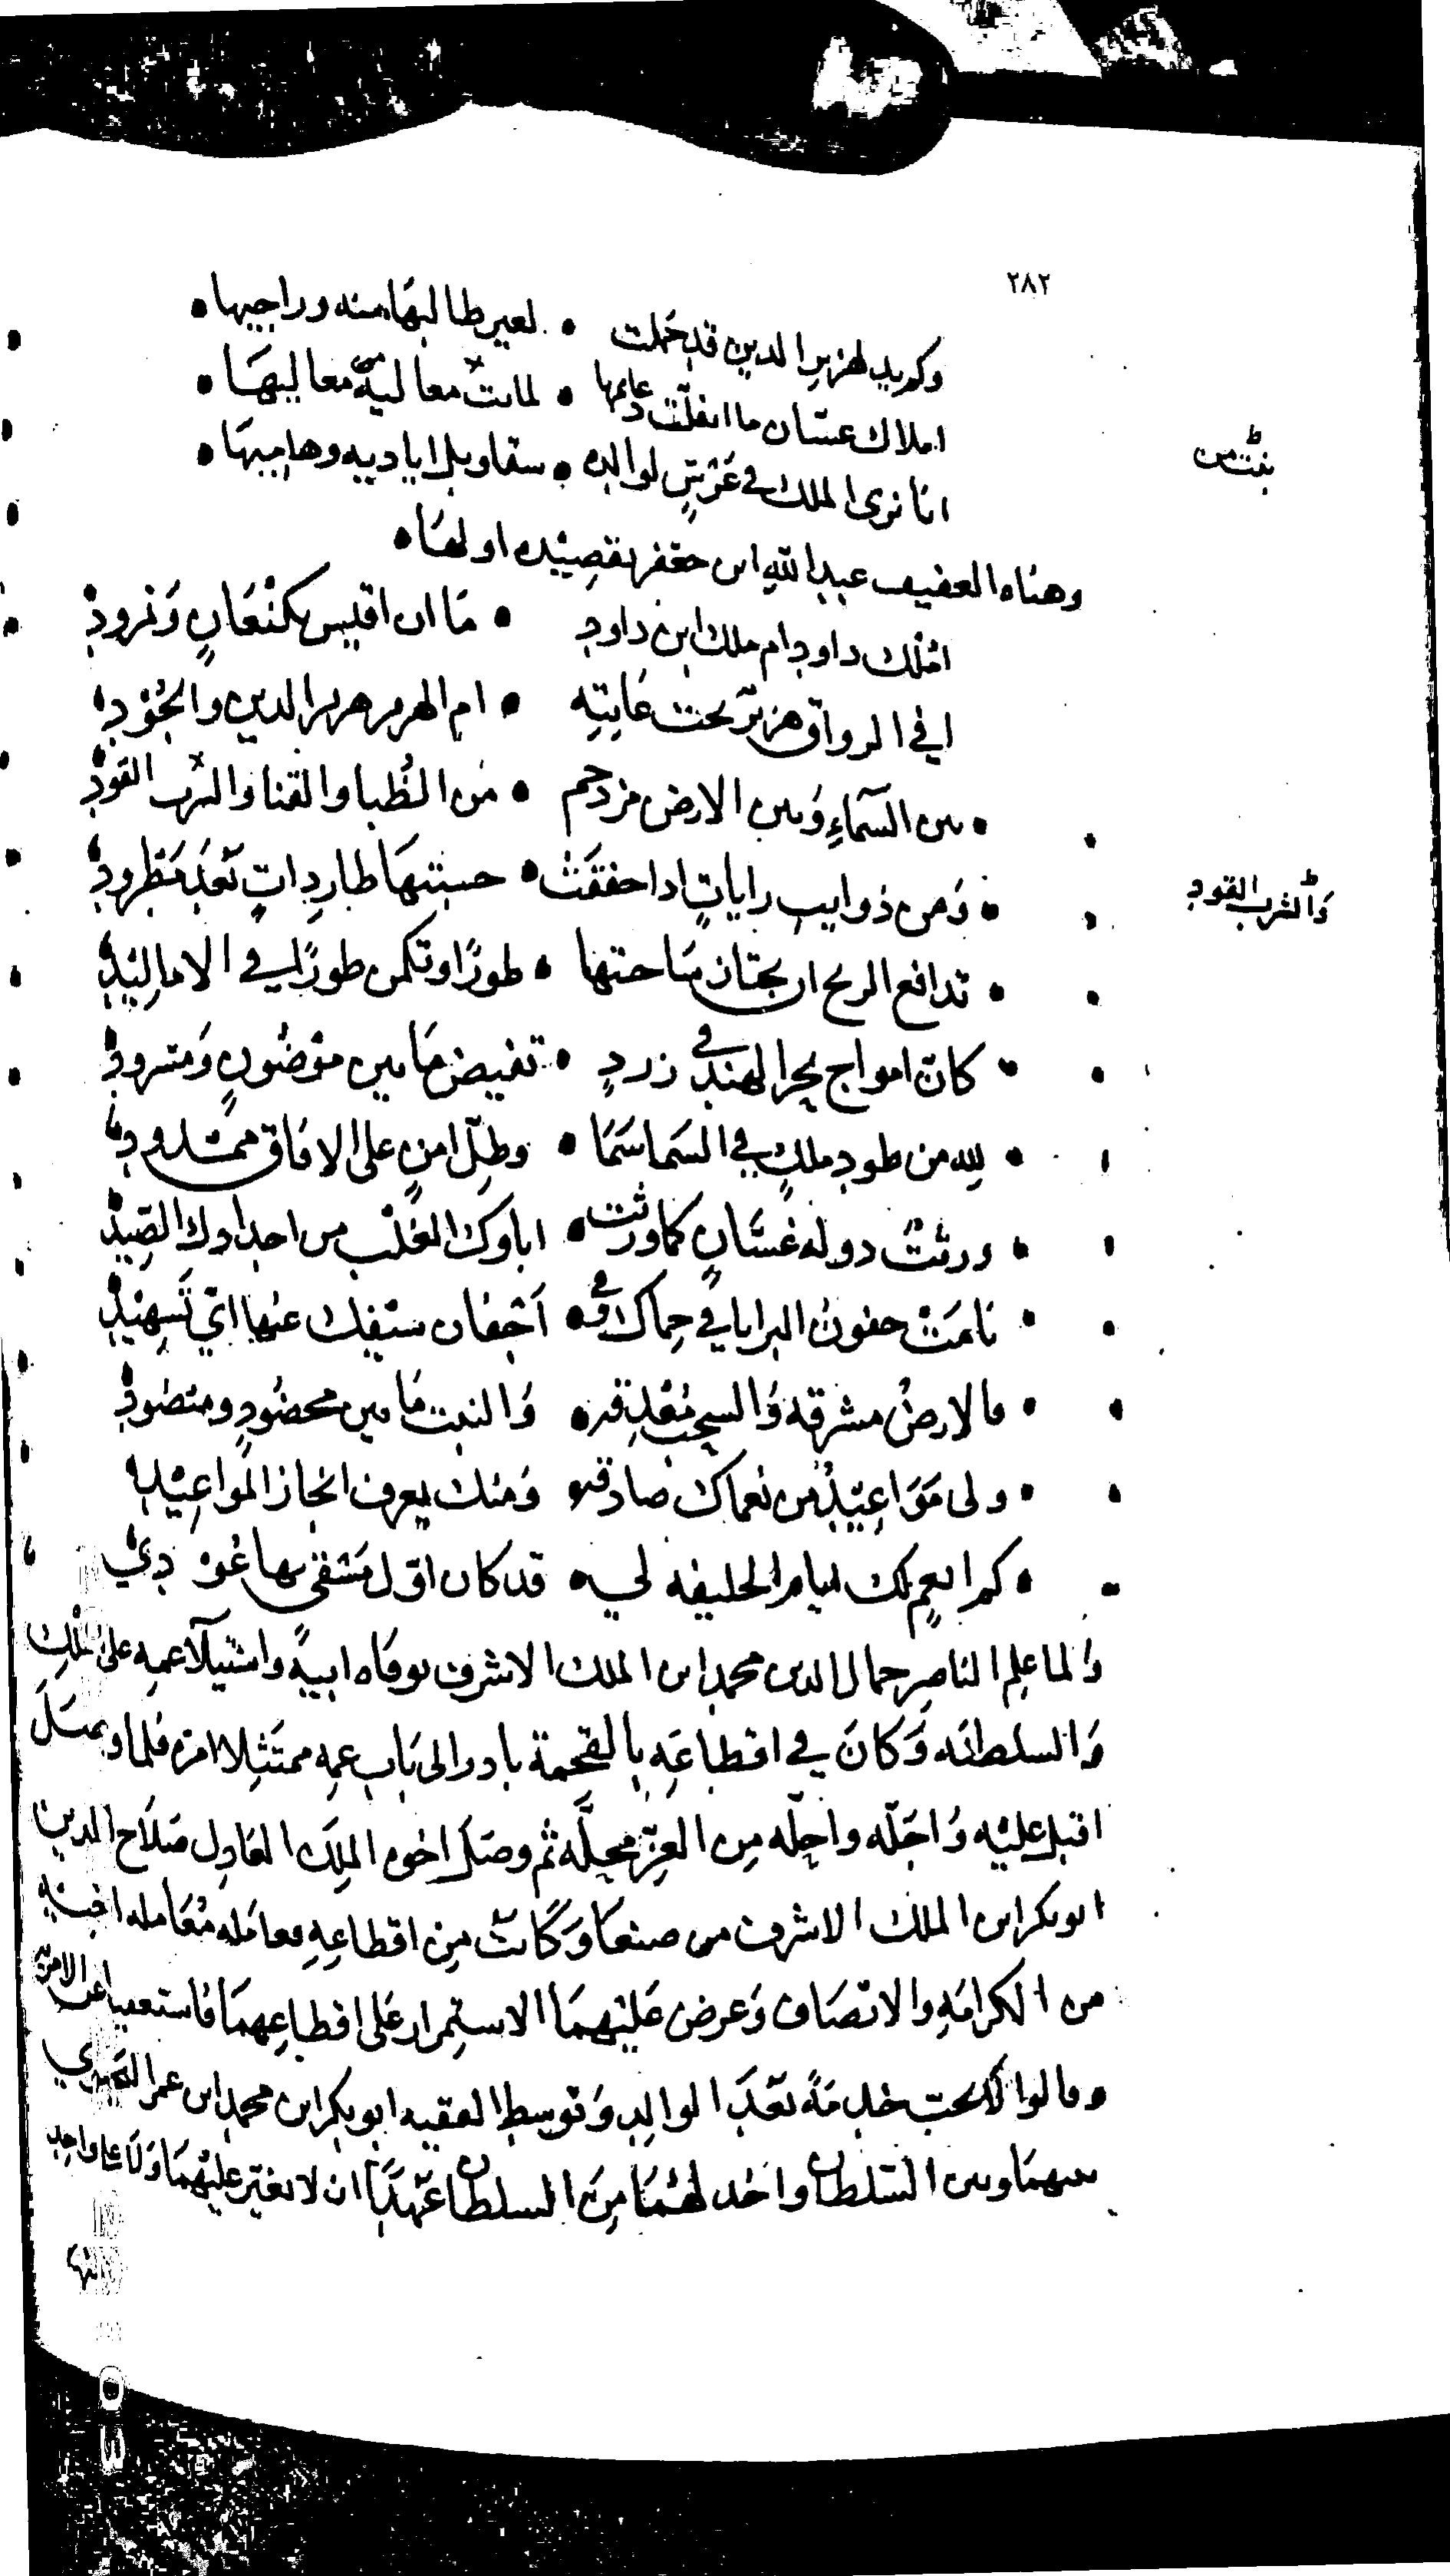 ٢٨٢
وكم يد لهزبر الدين قد حملت • لغير طالبها منه وراجيها •
املاك غسان ما انفلت دعايمها • لما بنت معاليه معاليها •
بنت من
انا نرى الملك في غرس لوالده • سقا وبل اياديه وهاميها •
وهناه العفيف عبد الله ابن جعفر بقصيده اولها •
املك داود ام ملك ابن داود • ما ان اقيس بكنعان ونمرود
افي الرواق هزبر تحت غابته • ام الهزبر هزبر الدين والجود
• بين السماء وبين الارض مزدحم • من الظبا والقنا والشرب القود
والشرب القود
• ومن ذوايب رايات اذا خفقت • حسبتها طاردات بعد مطرود
• تدافع الريح ان تجتاز ساحتها • طورا وتكمن طورا في الاماليد
• كان امواج بحر الهند في زرد • تفيض ما بين موضون ومسرود
• لله من طود ملك في السما سما • وظل امن على الافاق ممدود
• ورثت دوله غسان كما ورثت • اباوك الغلب من اجدادك الصيد
• نامت جفون البرايا في حماك وفي • اجفان سيفك عنها اي تسهيد
• فالارض مشرقه والسحب مغدقه • والنبت ما بين مخضود ومنضود
• ولي مواعيد من نعماك صادقه • ومنك يعرف انجاز المواعيد
• كم انعم لك ايام الخليفه لي • قد كان اول مسقى بها عودي
ولما علم الناصر جمال الدين محمد ابن الملك الاشرف بوفاه ابيه واستيلا عمه على الملك
والسلطنه وكان في اقطاعه بالقحمة بادر الى باب عمه ممتثلا لامره فلما وصل
اقبل عليه واجله واحله من العز محله ثم وصل اخوه الملك العادل صلاح الدين
ابو بكر ابن الملك الاشرف من صنعا وكانت من اقطاعه فعامله معامله اخيه
من الكرامه والانصاف وعرض عليهما الاستمرار على اقطاعهما فاستعفيا عن الامر
وقالوا لا نحب خدمة بعد الوالد وتوسط الفقيه ابو بكر ابن محمد ابن عمر
بينهما وبين السلطان واخذ لهما من السلطان عهدا ان لا يغير عليهما ولا على واحد